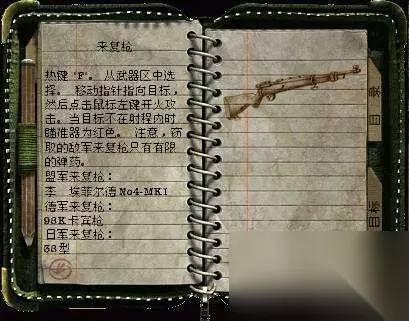 来复枪
热键 'F'。 从武器区中选
择。 移动指针指向目标，
然后点击鼠标左键开火攻
击。当目标不在射程内时
瞄准器为红色。 注意，窃
取的敌军来复枪只有有限
的弹药。
盟军来复枪：
李．埃菲尔德 No4-MK1
德军来复枪：
98K卡宾枪
日军来复枪：
38型
目录
目标